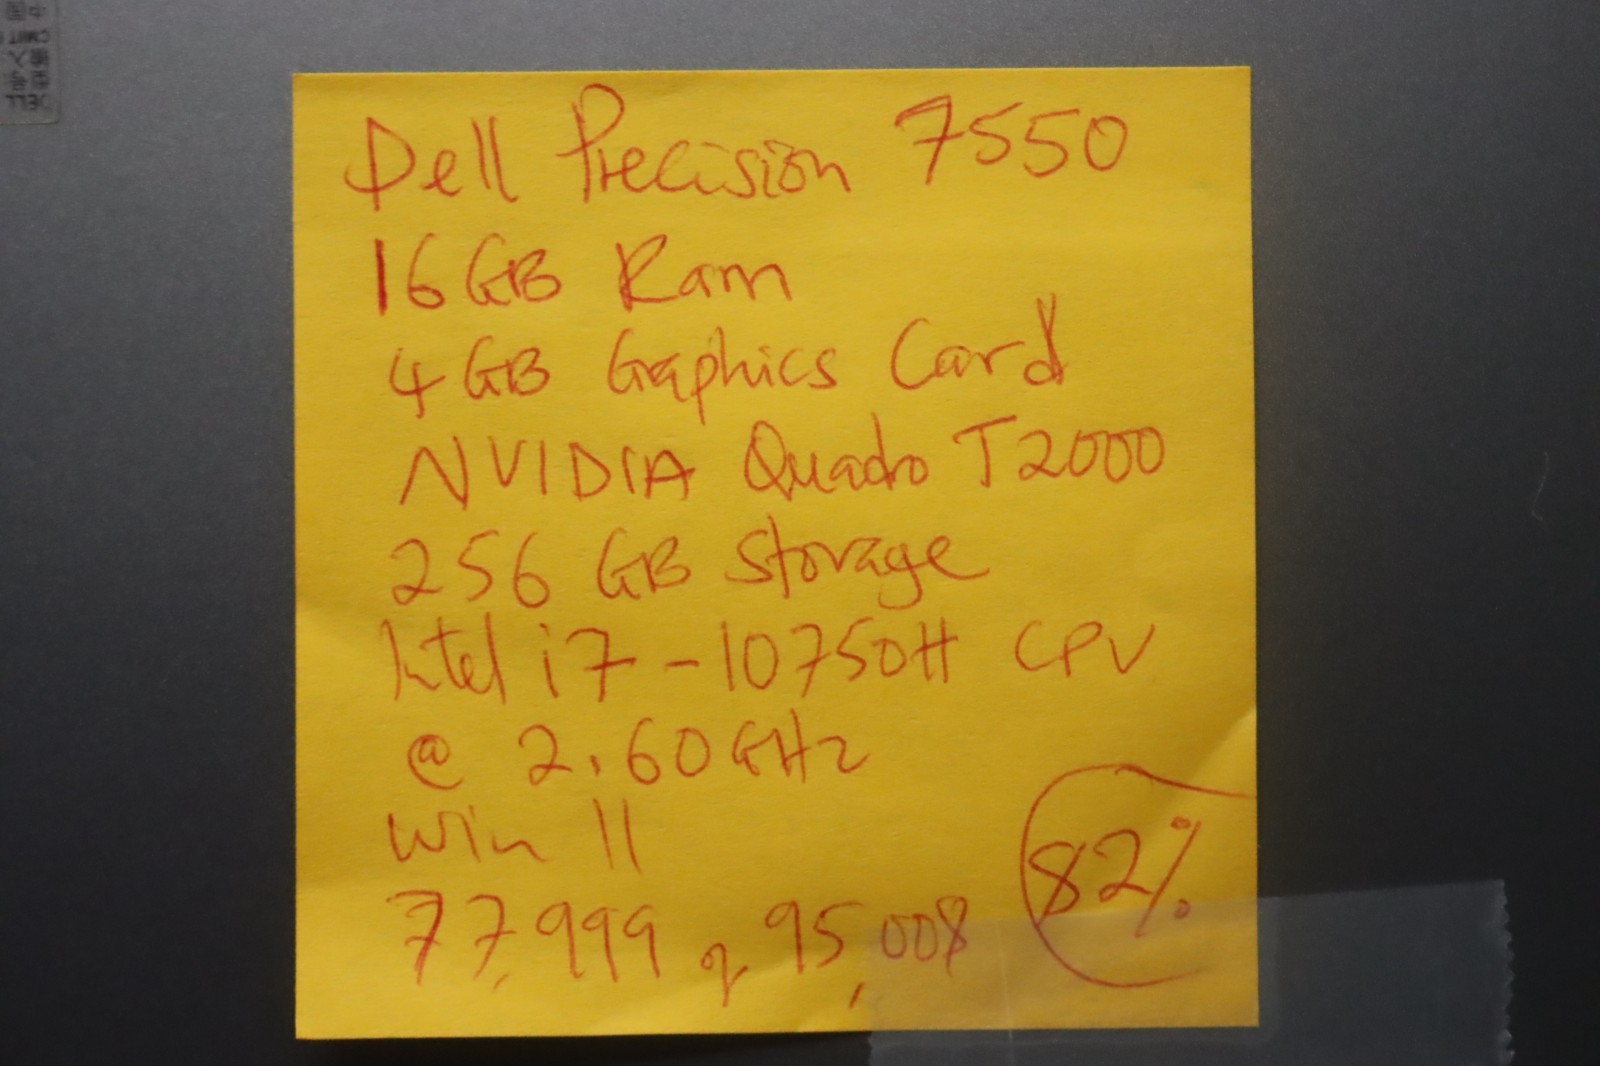 Dell Precision 7550
16GB Ram
4GB Graphics Card
NVIDIA Quadro T2000
256 GB Storage
Intel i7-10750H CPU
@ 2.60GHz
Win 11
77,999 95,008
82%
DELL
型号:
输入
CMIIT
中国